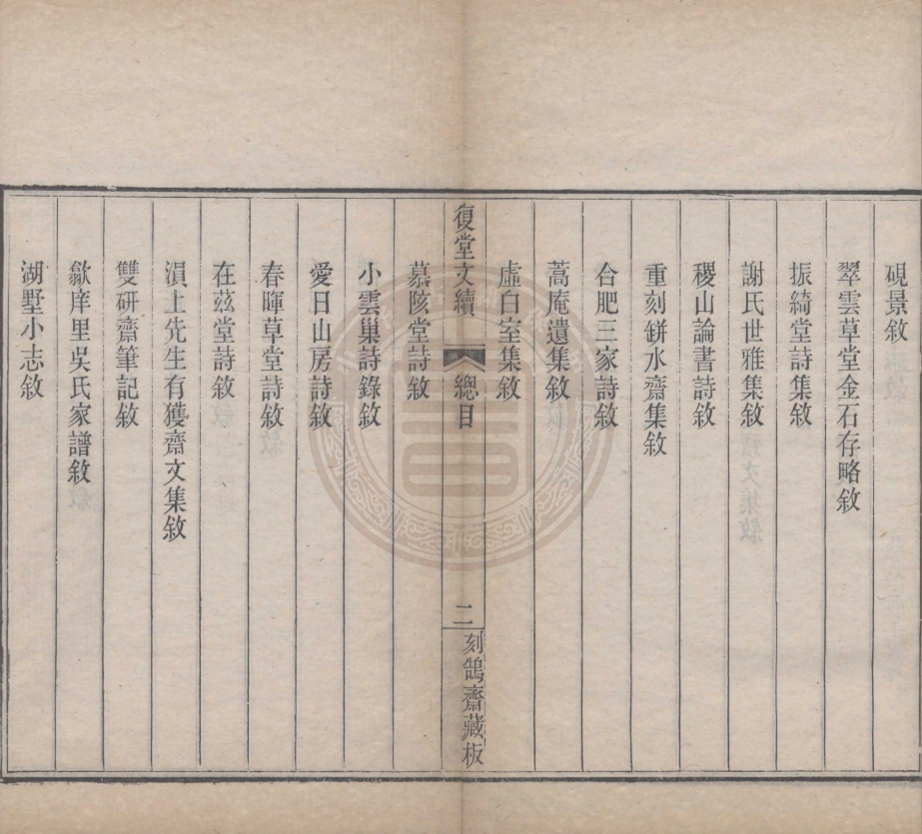 硯景敘
翠雲草堂金石存略敘
振綺堂詩集敘
謝氏世雅集敘
稷山論書詩敘
重刻缾水齋集敘
合肥三家詩敘
蒿庵遺集敘
虛白室集敘
復堂文續 總目 二 刻鵠齋藏板
慕陔堂詩敘
小雲巢詩錄敘
愛日山房詩敘
春暉草堂詩敘
在茲堂詩敘
溳上先生有獲齋文集敘
雙硏齋筆記敘
歙庠里吳氏家譜敘
湖墅小志敘